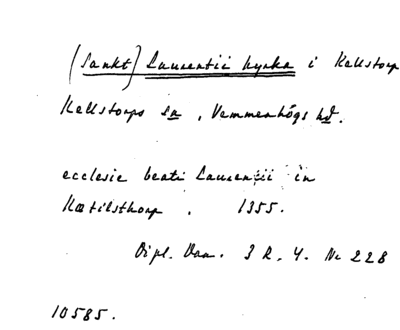 (Sankt) Laurentii kyrka i Källstorp
Källstorps sn, Vemmenhögs hd.
ecclesie beati Laurencii in
Kætilsthorp. 1355.
Dipl. Dan. 3 R. 4. Nr 228
10585.